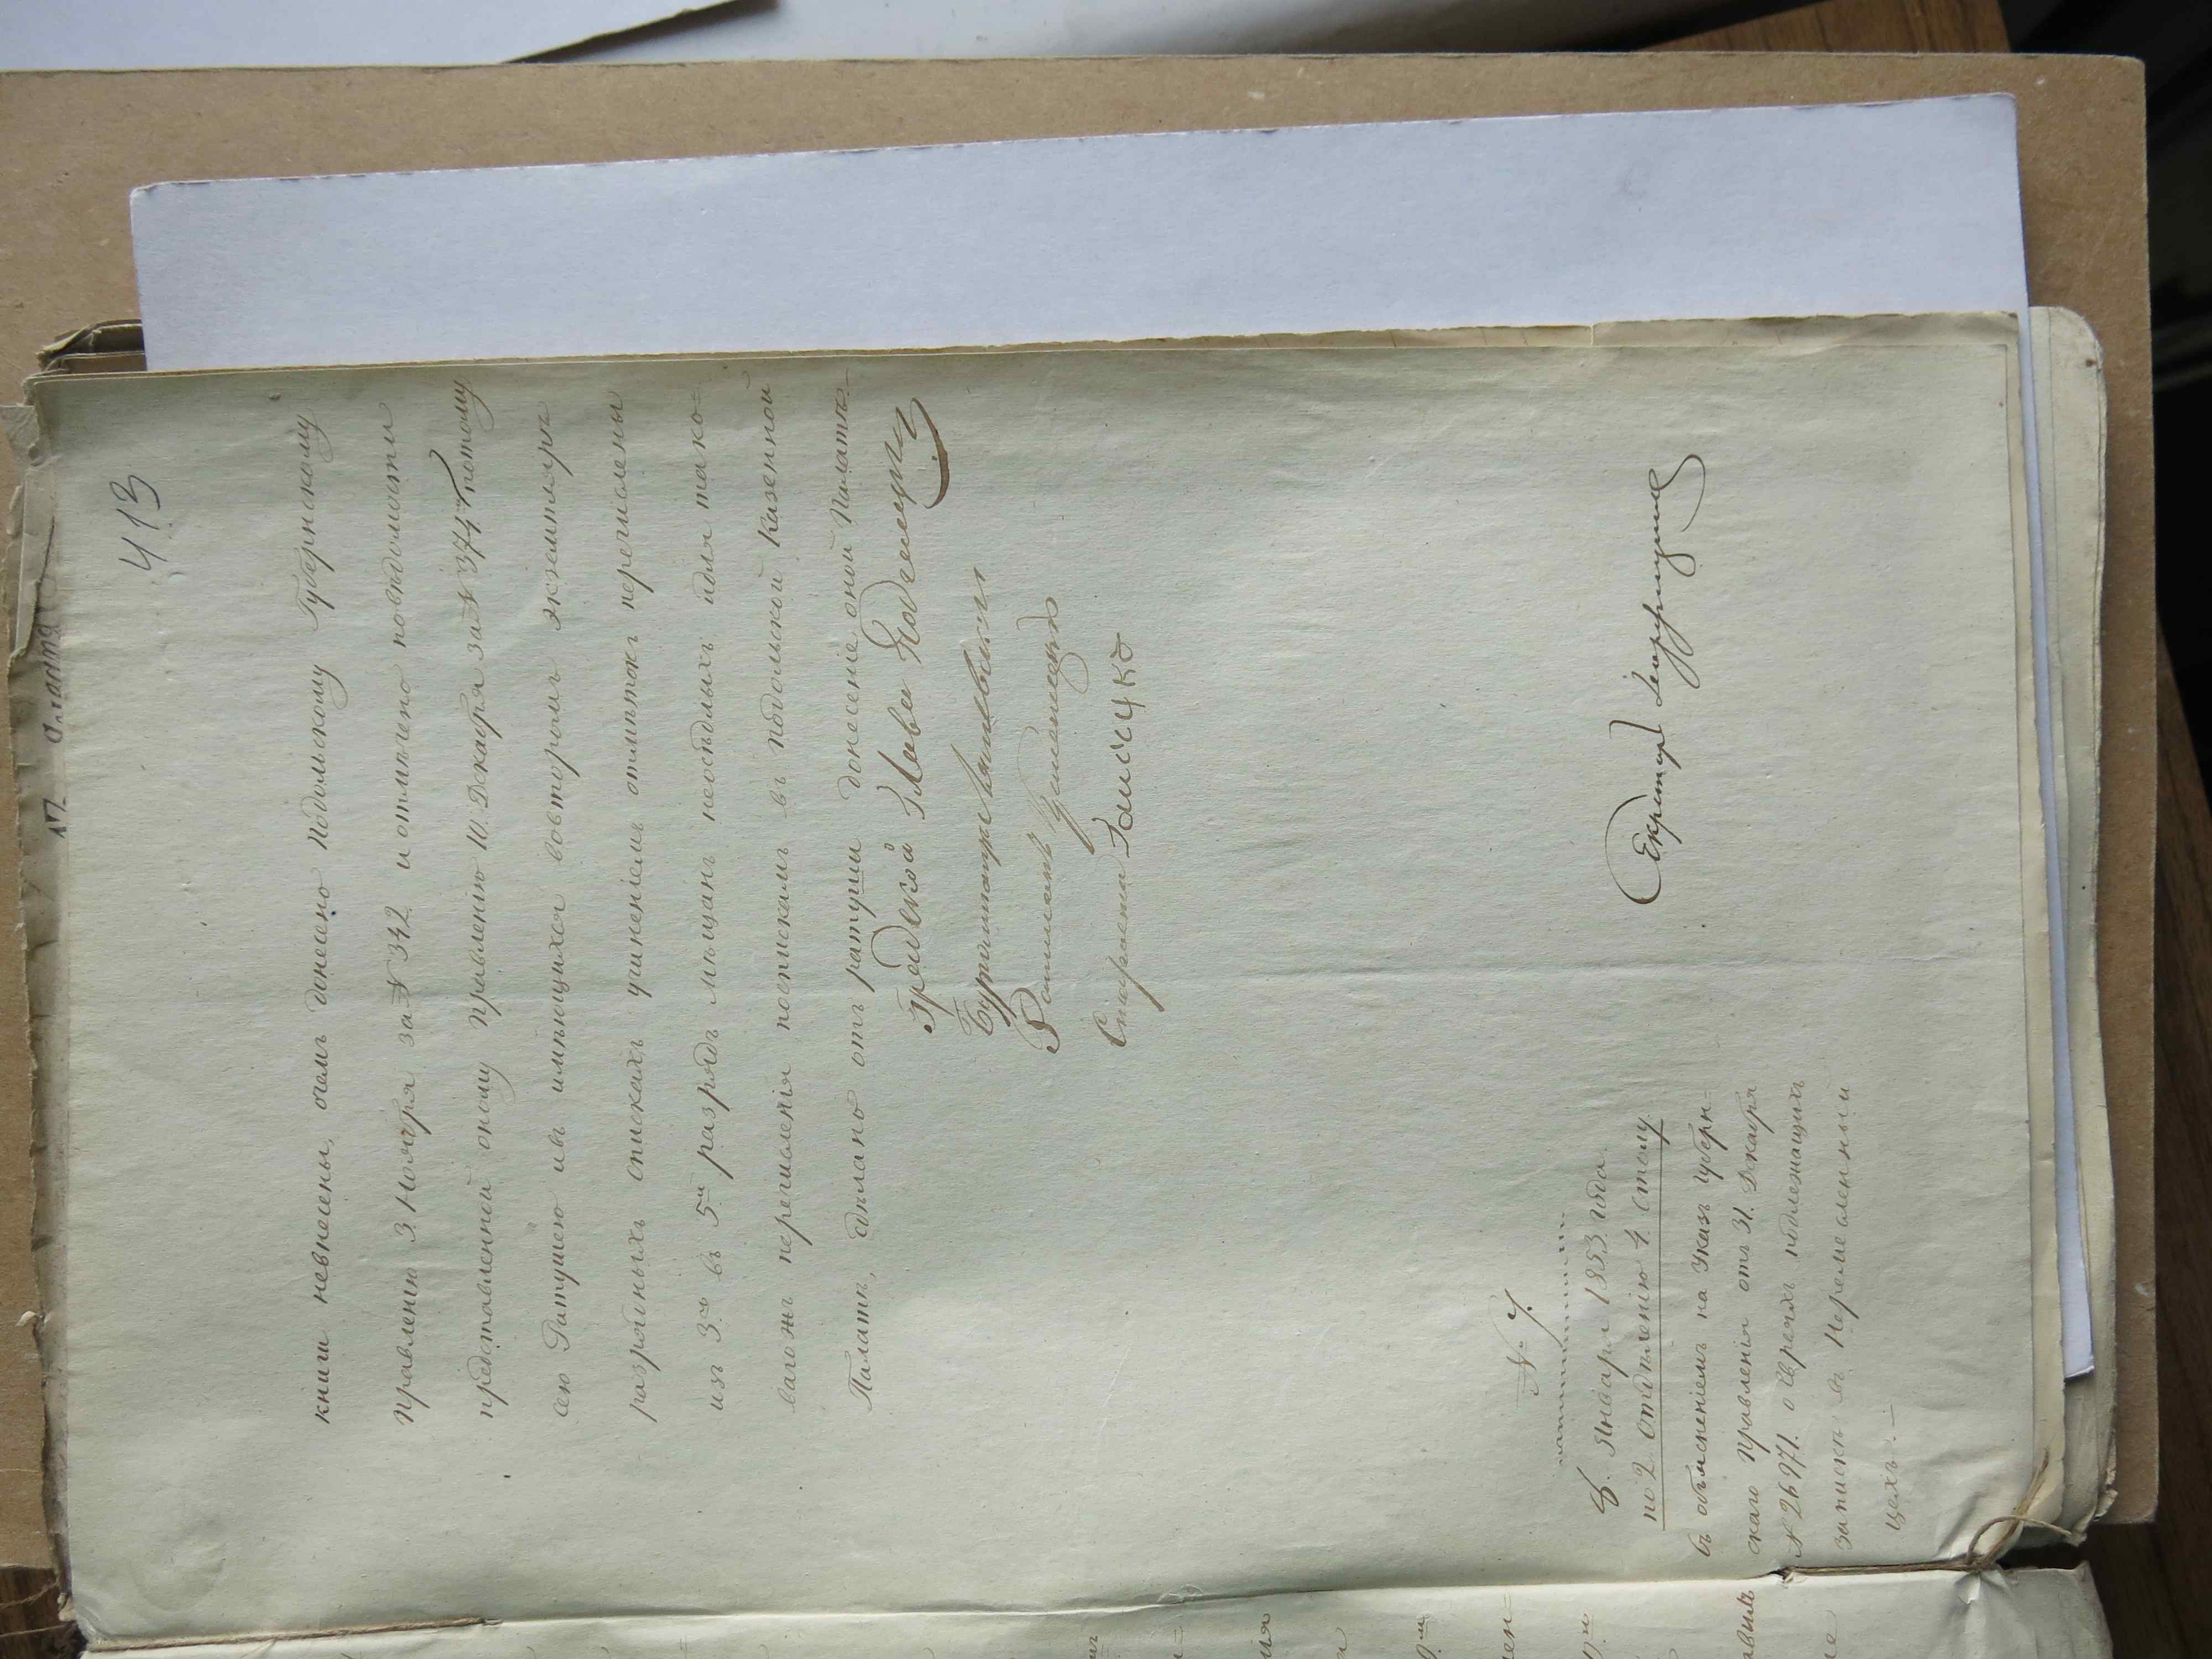 413
книги невнесены, очемъ донесено Подольскому Губернскому
Правленію 3. Ноября за № 342. и отмѣчено повѣдомости
представленной оному Правленію 10. Декабря за № 3747 потому
сею Ратушею ивъ имѣющихся вовторомъ экземплярѣ
разрядныхъ спискахъ учиненіемъ отмѣтокъ перечислены
изъ 3го въ 5й разрядъ мѣщанъ неосѣдлыхъ идля тако=
вагожъ перечисленія поспискамъ въ Подольской Казенной
Палатѣ, сдѣлано отъ ратуши донесеніе оной Палатѣ.
Градской Глава
Бургомистръ
Ратманъ
Староста
Секретарь
№ 7.
8. Января 1853 года.
по 2. Отдѣленію 4. Столу.
Съ объясненіемъ на Указъ Губерн=
скаго Правленія отъ 31. Декабря
№ 26971. о Евреяхъ подлежащихъ
запискѣ въ Неремесленный
Цехъ.—